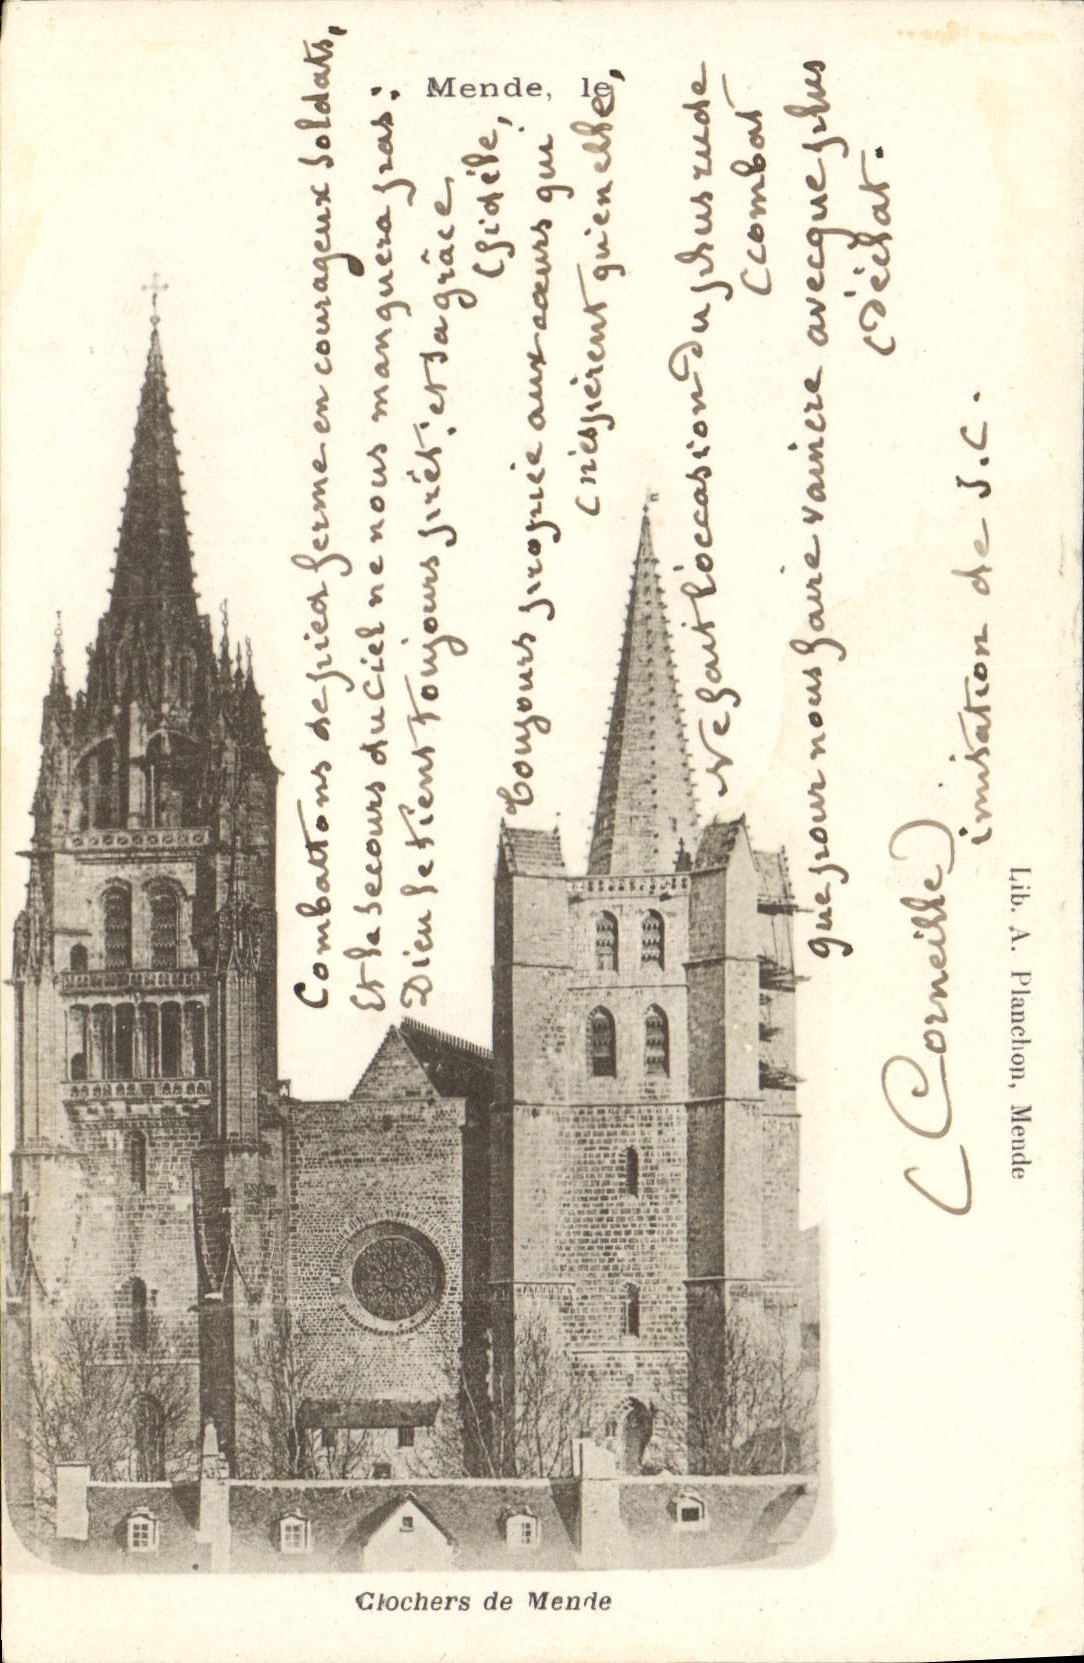 Mende, le
Combattons de pied ferme en courageux soldats,
Et le secours du Ciel ne nous manquera pas:
Dieu le tient toujours prêt; et sa grâce
(fidèle,
Toujours propice aux cœurs qui
(n'espèrent qu'en elle,
Ne fait l'occasion du plus rude
(combat
Que pour nous faire vaincre avecque plus
(d'éclat.
(Corneille)
imitation de J.C.
Lib. A. Planchon, Mende
Clochers de Mende